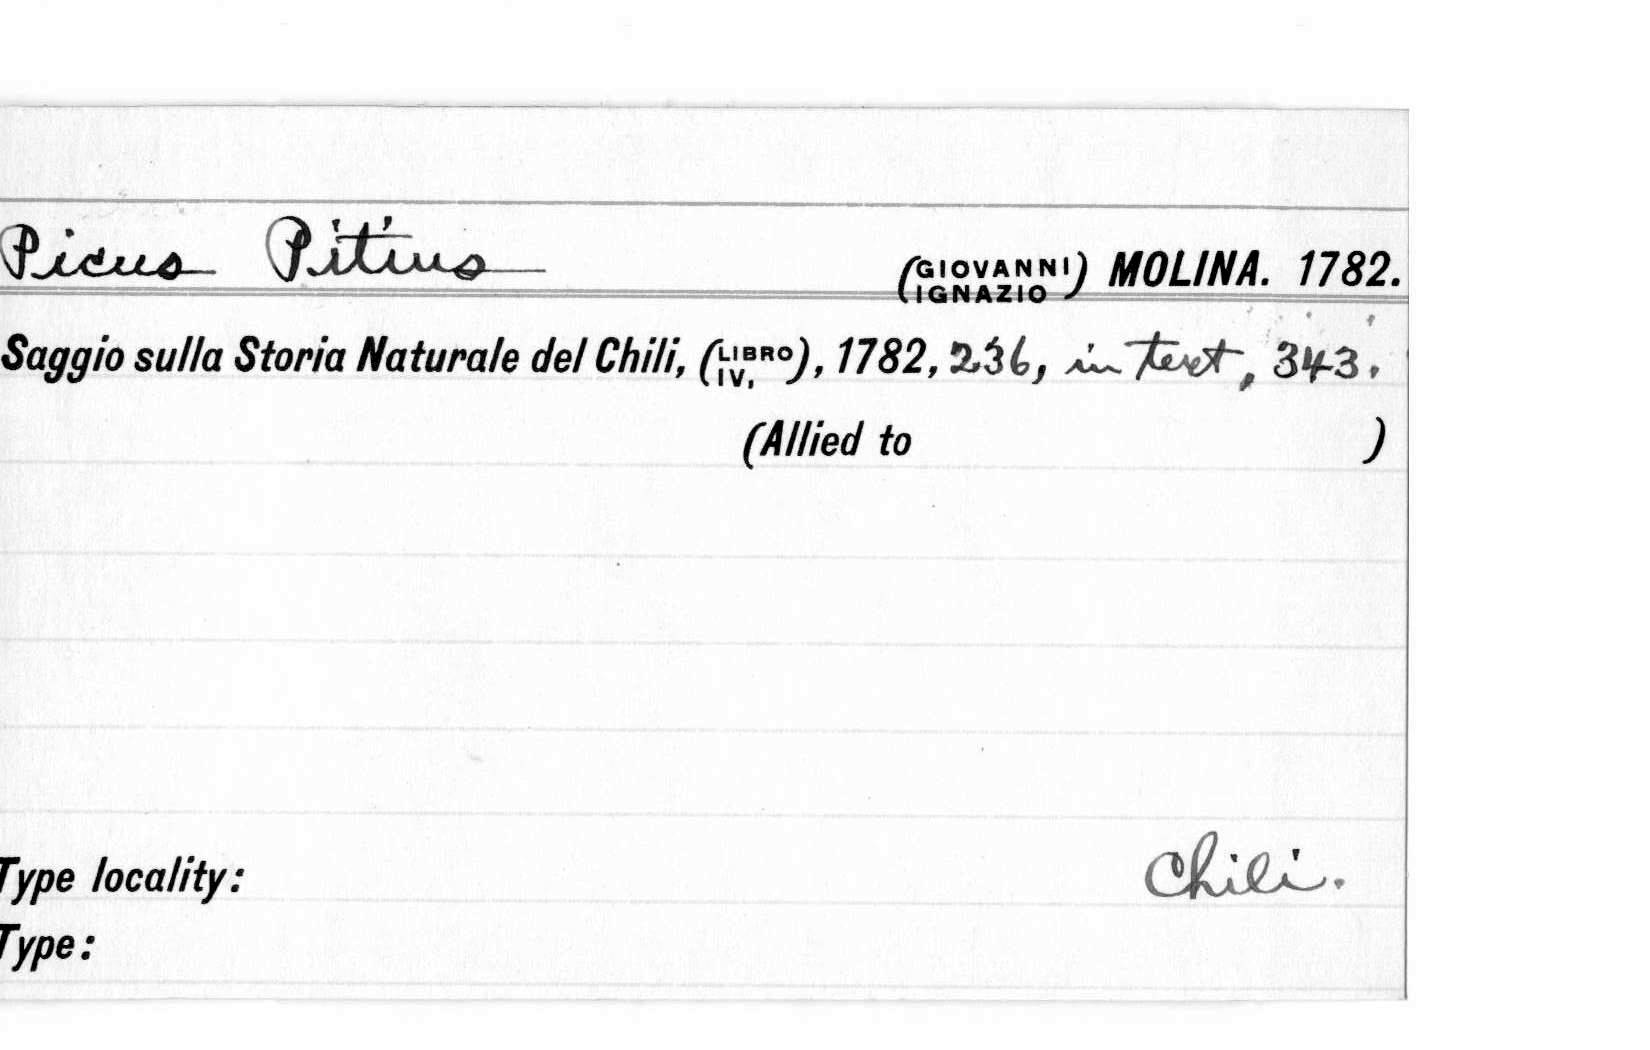 Picus Pitius (GIOVANNI IGNAZIO) MOLINA. 1782.
Saggio sulla Storia Naturale del Chili, (LIBRO IV,), 1782, 236, in text, 343.
(Allied to )
Type locality: Chili.
Type: